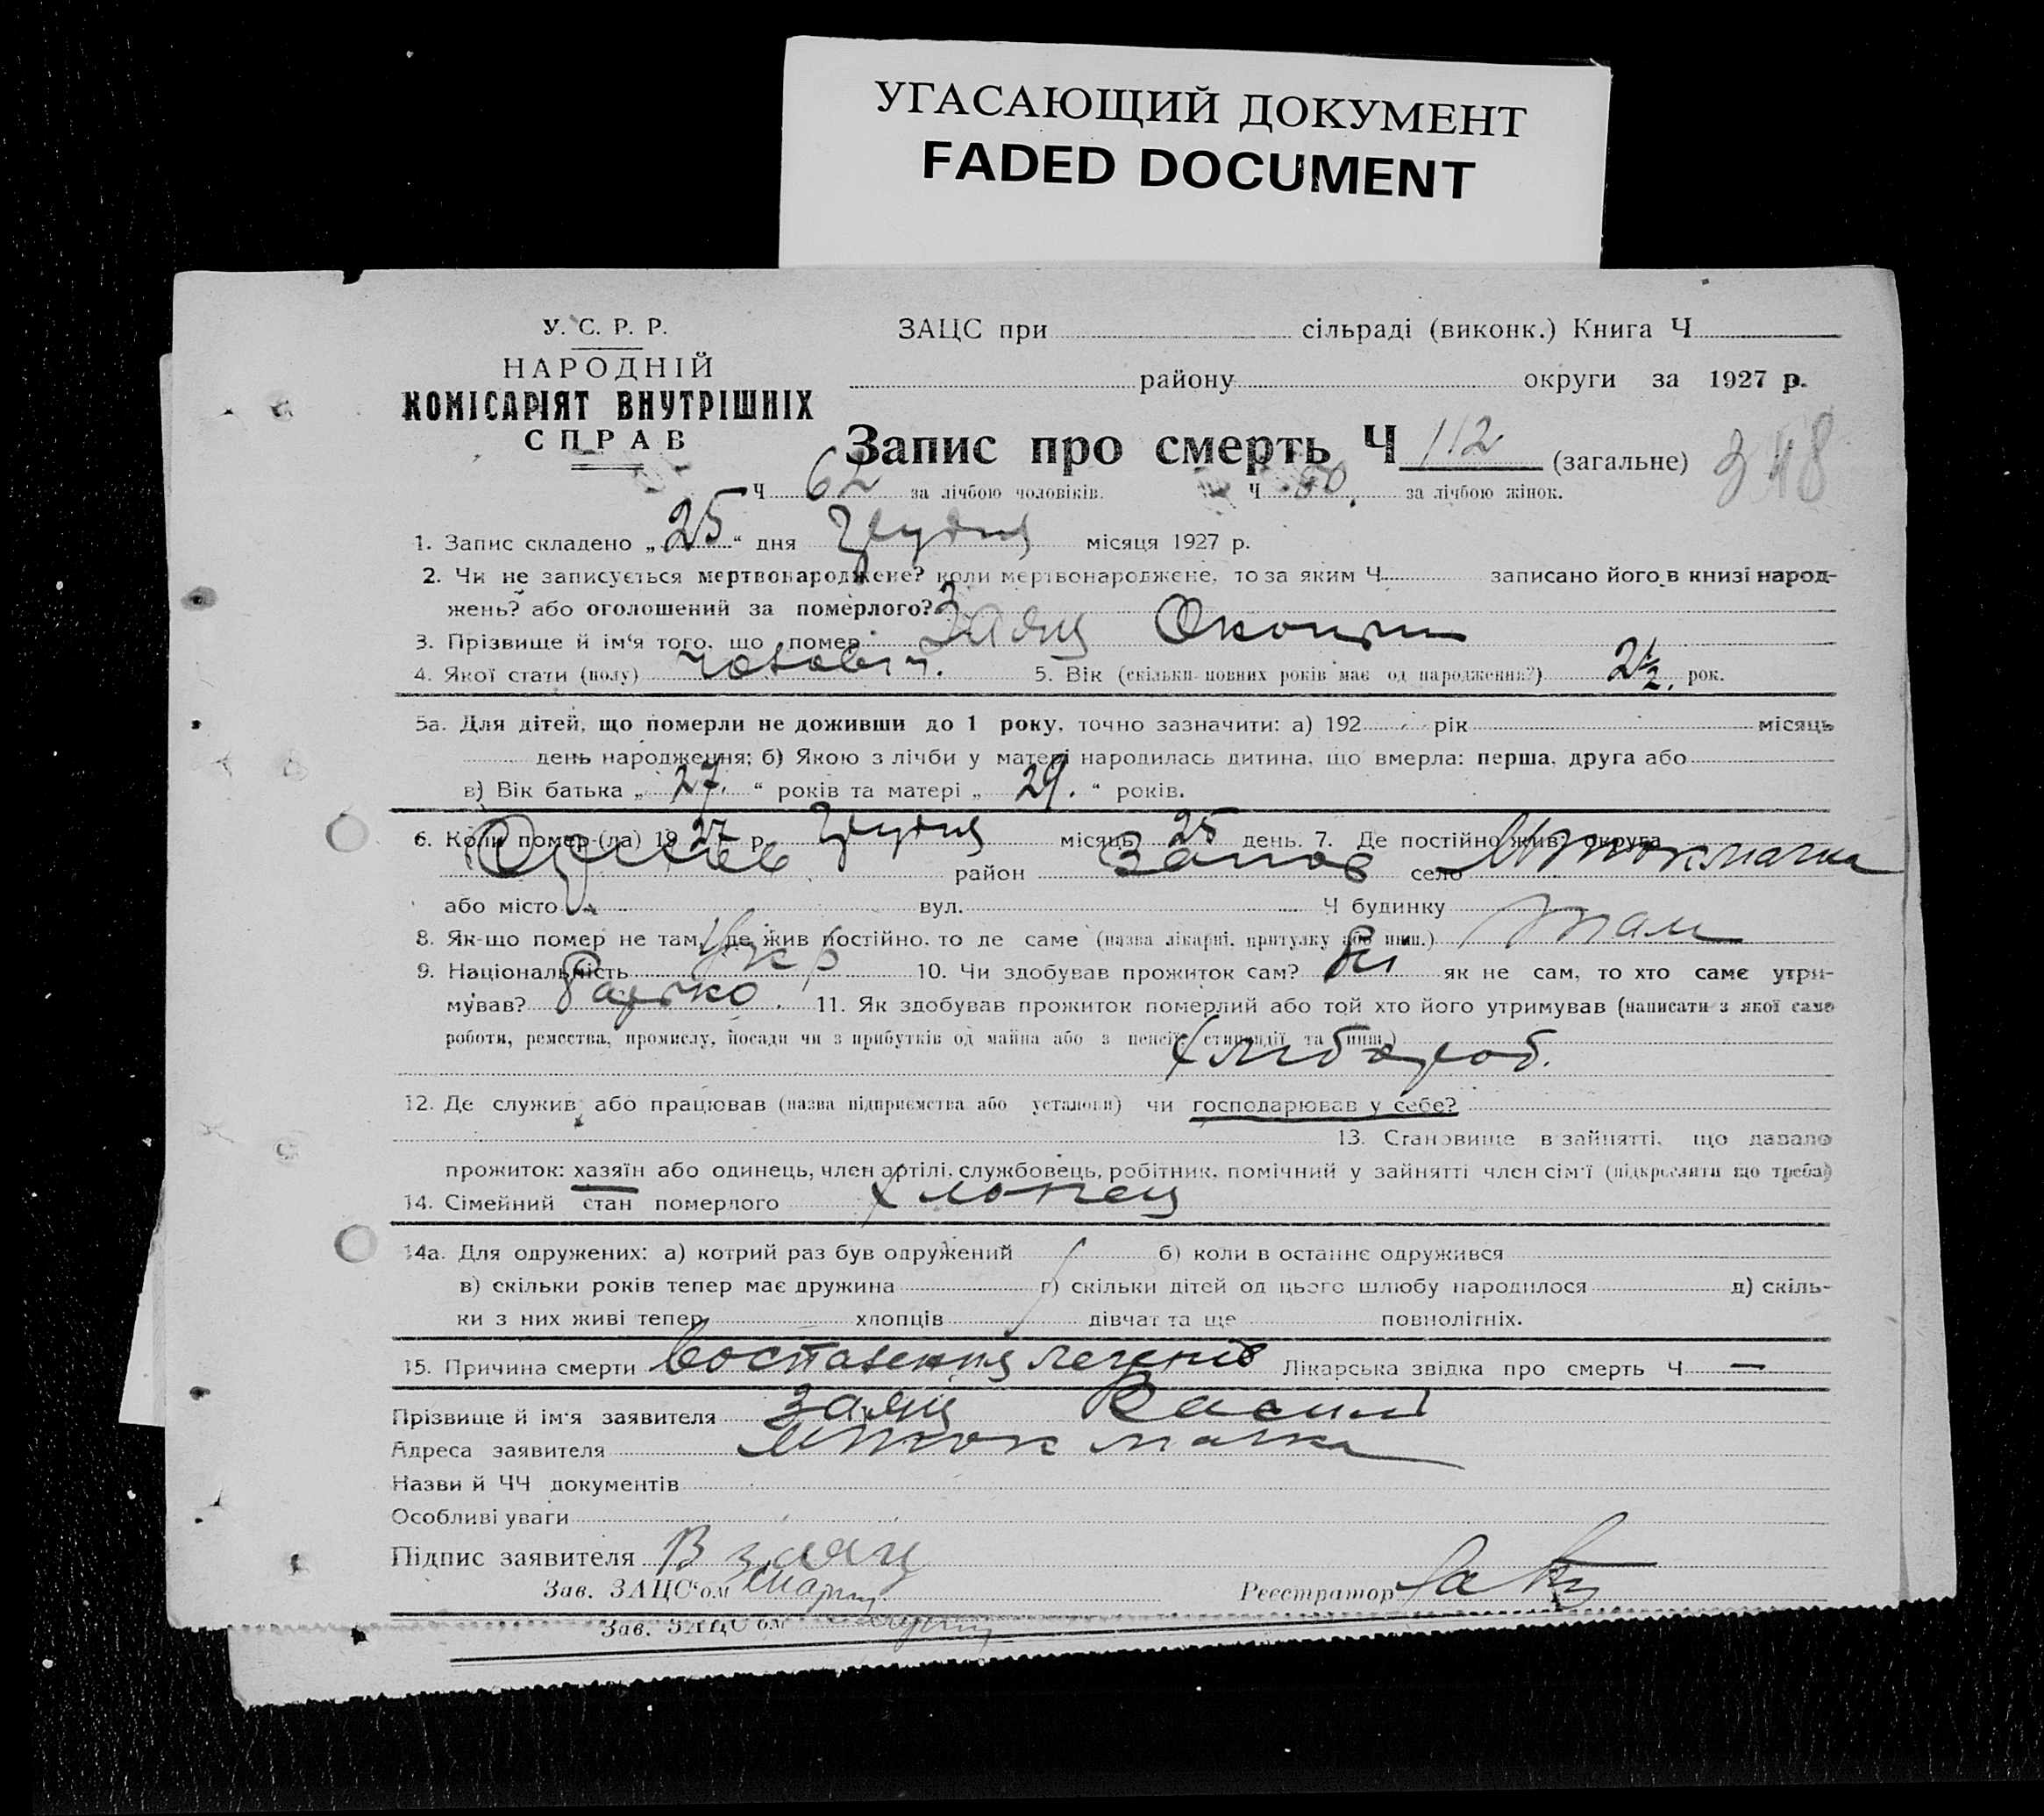 УГАСАЮЩИЙ ДОКУМЕНТ
FADED DOCUMENT
У. С. Р. Р.
НАРОДНІЙ
КОМІСАРІЯТ ВНУТРІШНІХ
СПРАВ
ЗАЦС при сільраді (виконк.) Книга Ч
району округи за 1927 р.
Запис про смерть Ч 112 (загальне) 348
Ч 62 за лічбою чоловіків. Ч 50. за лічбою жінок.
1. Запис складено „25“ дня Грудня місяця 1927 р.
2. Чи не записується мертвонароджене? коли мертвонароджене, то за яким Ч записано його в книзі народ-
жень? або оголошений за померлого?
3. Прізвище й ім'я того, що помер Заяц
4. Якої стати (полу) чоловіч. 5. Вік (скільки повних років має од народження?) 2½ рок.
5а. Для дітей, що померли не доживши до 1 року, точно зазначити: а) 192 рік місяць
день народження; б) Якою з лічби у матері народилась дитина, що вмерла: перша, друга або
в) Вік батька „27.“ років та матері „29.“ років.
6. Коли помер (ла) 1927 р. Грудня місяць 25 день. 7. Де постійно жив: округа
район Запор село М Токмачка
або місто вул. Ч будинку
8. Як-що помер не там, де жив постійно, то де саме (назва лікарні, притулку або инш.) там
9. Національність Укр 10. Чи здобував прожиток сам? Ні як не сам, то хто саме утри-
мував? Батько. 11. Як здобував прожиток померлий або той хто його утримував (написати з якої саме
роботи, ремества, промислу, посади чи з прибутків од майна або з пенсії, стипендії та инш.)
Хлібороб.
12. Де служив або працював (назва підприємства або установи) чи господарював у себе?
13. Становище в зайнятті, що давало
прожиток: хазяїн або одинець, член артілі, службовець, робітник, помічний у зайнятті член сім'ї (підкреслити що треба)
14. Сімейний стан померлого Хлопец
14а. Для одружених: а) котрий раз був одружений б) коли в останнє одружився
в) скільки років тепер має дружина г) скільки дітей од цього шлюбу народилося д) скіль-
ки з них живі тепер хлопців дівчат та ще повнолітніх.
15. Причина смерти Воспаления легенів Лікарська звідка про смерть Ч —
Прізвище й ім'я заявителя Заяц Василь
Адреса заявителя М Токмачка
Назви й ЧЧ документів
Особливі уваги
Підпис заявителя В Заяц
Зав. ЗАЦС'ом Реєстратор
Зав. ЗАЦС'ом